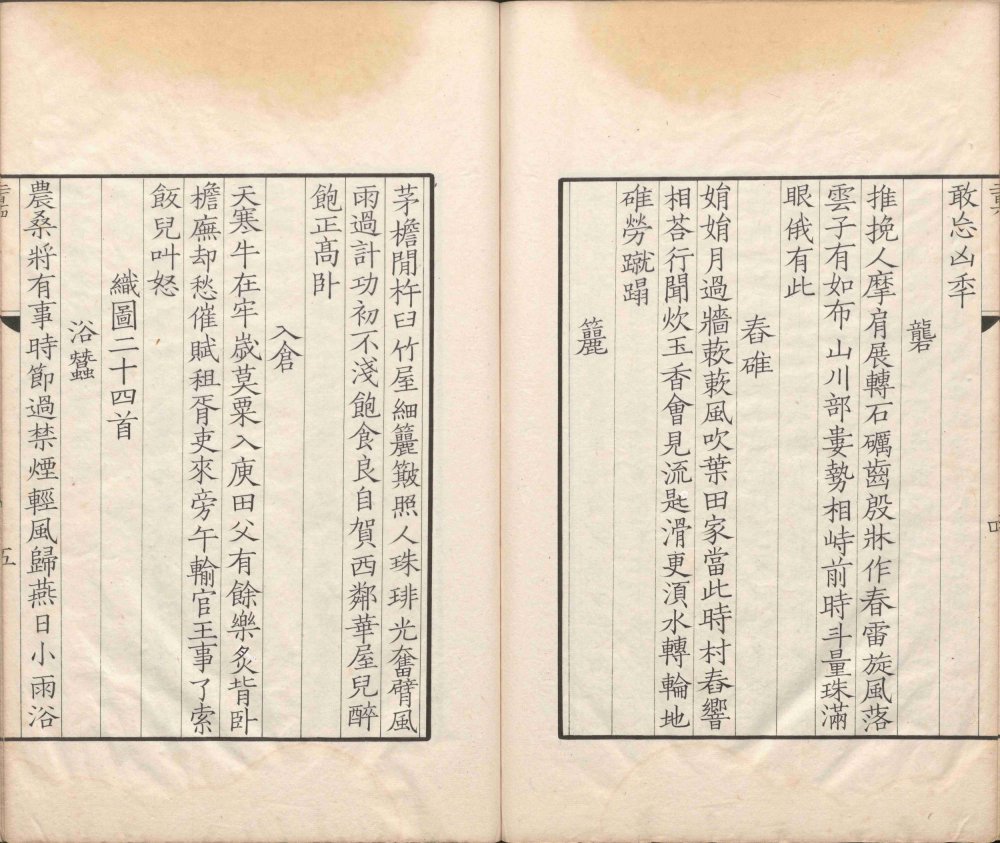 敢忘凶秊
礱
推挽人摩肩展轉石礪齒殷牀作春雷旋風落
雲子有如布山川部婁勢相峙前時斗量珠滿
眼俄有此
舂碓
娟娟月過牆蔌蔌風吹葉田家當此時村舂響
相荅行聞炊玉香會見流匙滑更湏水轉輪地
碓勞蹴蹋
簏
茅檐閒杵臼竹屋細簏簸照人珠琲光奮臂風
雨過計功初不淺飽食良自賀西鄰華屋兒醉
飽正髙卧
入倉
天寒牛在牢歲莫粟入庾田父有餘樂炙背卧
檐廡却愁催賦租胥吏來旁午輸官王事了索
飯兒叫怒
織圖二十四首
浴蠶
農桑將有事時節過禁煙輕風歸燕日小雨浴
五